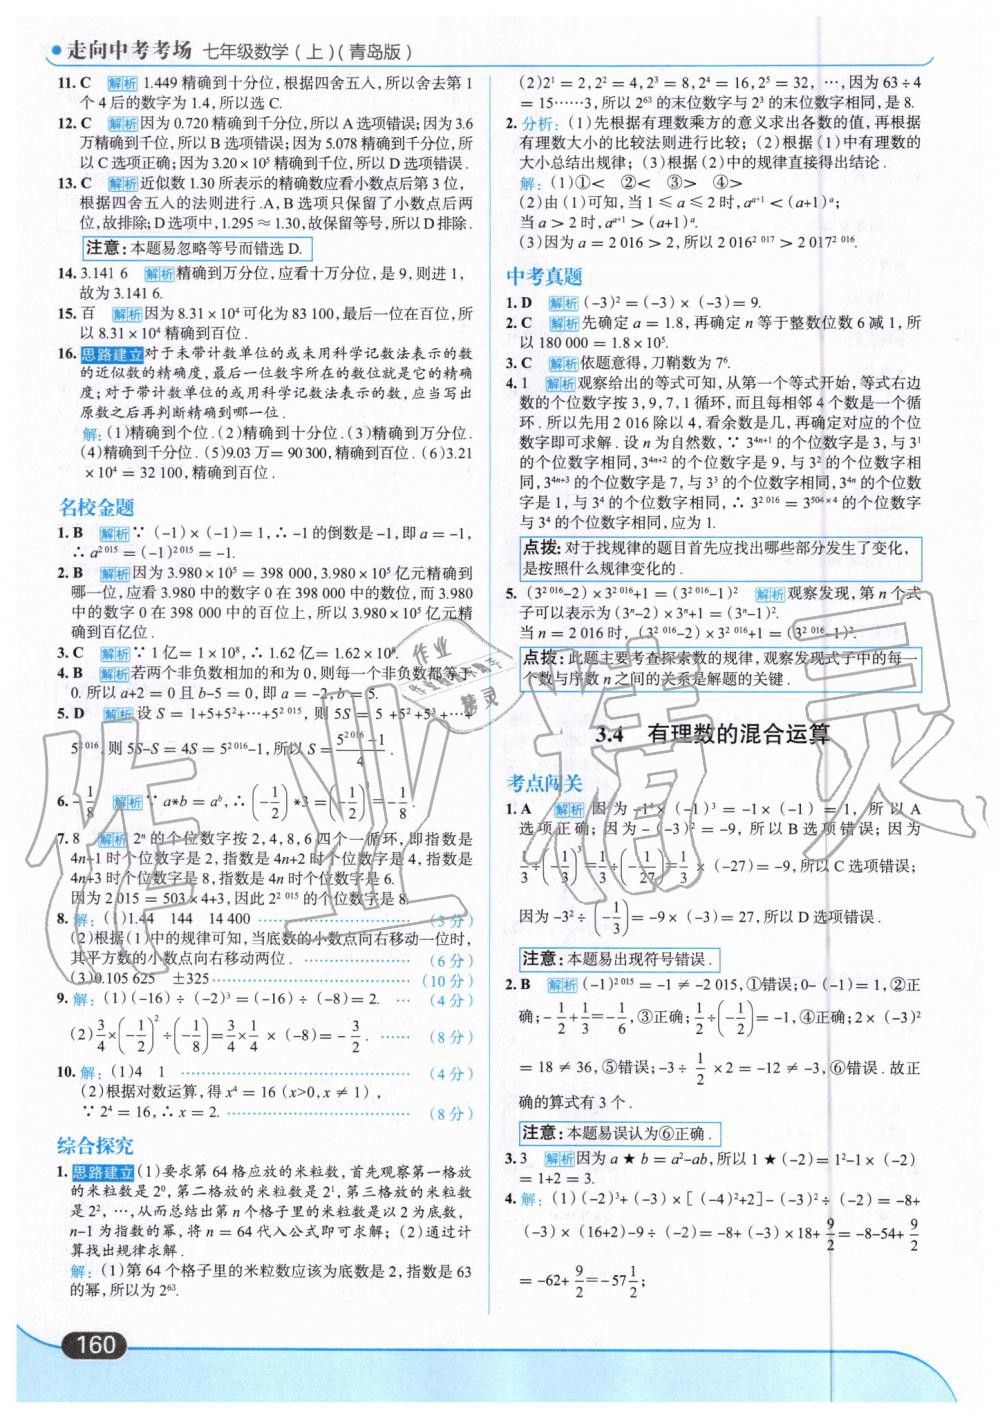 走向中考考场 七年级数学(上)(青岛版)
11. C 解析 1.449 精确到十分位,根据四舍五入,所以舍去第 1
个 4 后的数字为 1.4,所以选 C.
12. C 解析 因为 0.720 精确到千分位,所以 A 选项错误;因为 3.6
万精确到千位,所以 B 选项错误;因为 5.078 精确到千分位,所
以 C 选项正确;因为 3.20×10⁵ 精确到千位,所以 D 选项错误.
13. C 解析 近似数 1.30 所表示的精确数应看小数点后第 3 位,
根据四舍五入的法则进行.A、B 选项只保留了小数点后两
位,故排除;D 选项中,1.295≈1.30,故保留等号,所以 D 排除.
注意:本题易忽略等号而错选 D.
14. 3.141 6 解析 精确到万分位,应看十万分位,是 9,则进 1,
故为 3.141 6.
15. 百 解析 因为 8.31×10⁴ 可化为 83 100,最后一位在百位,所
以 8.31×10⁴ 精确到百位.
16. 思路建立 对于未带计数单位的或未用科学记数法表示的数
的近似数的精确度,最后一位数字所在的数位就是它的精确
度;对于带计数单位的或用科学记数法表示的数,应当写出
原数之后再判断精确到哪一位.
解:(1)精确到个位.(2)精确到十分位.(3)精确到万分位.
(4)精确到千分位.(5)9.03 万=90 300,精确到百位.(6)3.21
×10⁴=32 100,精确到百位.
名校金题
1. B 解析 ∵ (-1)×(-1)=1,∴ -1 的倒数是-1,即 a=-1,
∴ a^{2 015}=(-1)^{2 015}=-1.
2. B 解析 因为 3.980×10⁵=398 000,3.980×10⁵ 亿元精确到
哪一位,应看 3.980 中的数字 0 在 398 000 中的数位,而 3.980
中的数字 0 在 398 000 中的百位上,所以 3.980×10⁵ 亿元精
确到百亿位.
3. C 解析 ∵ 1 亿=1×10⁸,∴ 1.62 亿=1.62×10⁸.
4. B 解析 若两个非负数相加的和为 0,则每一个非负数都等于
0.所以 a+2=0 且 b-5=0,即 a=-2,b=5.
5. D 解析 设 S=1+5+5²+…+5^{2 015},则 5S=5+5²+5³+…+
5^{2 016},则 5S-S=4S=5^{2 016}-1,所以 S=(5^{2 016}-1)/4.
6. -1/8 解析 ∵ a*b=a^b,∴ (-1/2)*3=(-1/2)³=-1/8.
7. 8 解析 2ⁿ 的个位数字按 2,4,8,6 四个一循环,即指数是
4n+1 时个位数字是 2,指数是 4n+2 时个位数字是 4,指数是
4n+3 时个位数字是 8,指数是 4n 时个位数字是 6.
因为 2 015=503×4+3,因此 2^{2 015} 的个位数字是 8.
8. 解:(1)1.44 144 14 400 …… (3 分)
(2)根据(1)中的规律可知,当底数的小数点向右移动一位时,
其平方数的小数点向右移动两位. …… (6 分)
(3)0.105 625 ±325 …… (10 分)
9. 解:(1)(-16)÷(-2)³=(-16)÷(-8)=2. … (4 分)
(2)3/4×(-1/2)²÷(-1/8)=3/4×1/4×(-8)=-3/2. …… (8 分)
10. 解:(1)4 1 …… (4 分)
(2)根据对数运算,得 x⁴=16(x>0,x≠1),
∵ 2⁴=16,∴ x=2. …… (8 分)
综合探究
1. 思路建立 (1)要求第 64 格应放的米粒数,首先观察第一格放
的米粒数是 2⁰,第二格放的米粒数是 2¹,第三格放的米粒数
是 2²,…,从而总结出第 n 个格子里的米粒数是以 2 为底数,
n-1 为指数的幂,将 n=64 代入公式即可求解;(2)通过计
算找出规律求解.
解:(1)第 64 个格子里的米粒数应该为底数是 2,指数是 63
的幂,所以为 2⁶³.
160
(2)2¹=2,2²=4,2³=8,2⁴=16,2⁵=32,…,因为 63÷4
=15……3,所以 2⁶³ 的末位数字与 2³ 的末位数字相同,是 8.
2. 分析:(1)先根据有理数乘方的意义求出各数的值,再根据
有理数大小的比较法则进行比较;(2)根据(1)中有理数的
大小总结出规律;(3)根据(2)中的规律直接得出结论.
解:(1)①< ②< ③> ④>
(2)由(1)可知,当 1≤a≤2 时,a^{a+1}<(a+1)^a;
当 a>2 时,a^{a+1}>(a+1)^a.
(3)因为 a=2 016>2,所以 2 016^{2 017}>2 017^{2 016}.
中考真题
1. D 解析 (-3)²=(-3)×(-3)=9.
2. C 解析 先确定 a=1.8,再确定 n 等于整数位数 6 减 1,所
以 180 000=1.8×10⁵.
3. C 解析 依题意得,刀鞘数为 7⁶.
4. 1 解析 观察给出的等式可知,从第一个等式开始,等式右边
数的个位数字按 3,9,7,1 循环,而且每相邻 4 个数是一个循
环.所以先用 2 016 除以 4,看余数是几,再确定对应的个位
数字即可求解.设 n 为自然数,∵ 3^{4n+1} 的个位数字是 3,与 3¹
的个位数字相同,3^{4n+2} 的个位数字是 9,与 3² 的个位数字相
同,3^{4n+3} 的个位数字是 7,与 3³ 的个位数字相同,3^{4n} 的个位数
字是 1,与 3⁴ 的个位数字相同,∴ 3^{2 016}=3^{504×4} 的个位数字
与 3⁴ 的个位数字相同,应为 1.
点拨:对于找规律的题目首先应找出哪些部分发生了变化,
是按照什么规律变化的.
5. (3^{2 016}-2)×3^{2 016}+1=(3^{2 016}-1)² 解析 观察发现,第 n 个式
子可以表示为(3ⁿ-2)×3ⁿ+1=(3ⁿ-1)².
当 n=2 016 时,(3^{2 016}-2)×3^{2 016}+1=(3^{2 016}-1)².
点拨:此题主要考查探索数的规律,观察发现式子中的每一
个数与序数 n 之间的关系是解题的关键.
3.4 有理数的混合运算
考点闯关
1. A 解析 因为-1⁴×(-1)³=-1×(-1)=1,所以 A
选项正确;因为-(-3)²=-9,所以 B 选项错误;因为
1/3÷(-1/3)³=1/3÷(-1/27)=1/3×(-27)=-9,所以 C 选项错误;
因为-3²÷(-1/3)=-9×(-3)=27,所以 D 选项错误.
注意:本题易出现符号错误.
2. B 解析 (-1)^{2 015}=-1≠-2 015,①错误;0-(-1)=1,②正
确;-1/2+1/3=-1/6,③正确;1/2÷(-1/2)=-1,④正确;2×(-3)²
=18≠36,⑤错误;-3÷1/2×2=-12≠-3,⑥错误.故正
确的算式有 3 个.
注意:本题易误认为⑥正确.
3. 3 解析 因为 a★b=a²-ab,所以 1★(-2)=1²-1×(-2)
=1+2=3.
4. 解:(1)(-2)³+(-3)×[(-4)²+2]-(-3)²÷(-2)=-8+
(-3)×(16+2)-9÷(-2)=-8+(-3)×18+9/2=-8-54+9/2
=-62+9/2=-57 1/2;
作业精灵
作业
精灵